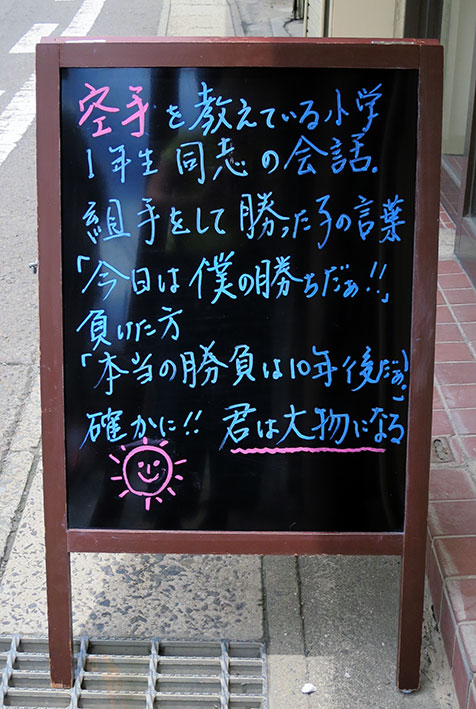 空手を教えている小学
1年生同志の会話.
組手をして勝った子の言葉
「今日は僕の勝ちだぁ!!」
負けた方
「本当の勝負は10年後だぁ」
確かに!! 君は大物になる